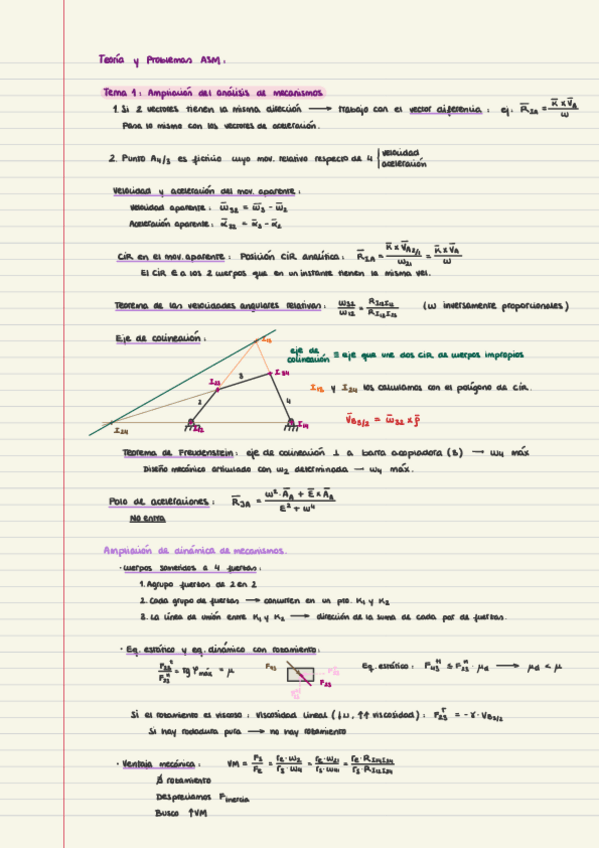 Teoría y Problemas ASM:
Tema 1: Ampliación del análisis de mecanismos
1. Si 2 vectores tienen la misma dirección → trabajo con el vector diferencia: ej: R̄_IA = (K̄ × V̄_A)/ω
Pasa lo mismo con los vectores de aceleración.
2. Punto A4/3 es ficticio cuyo mov. relativo respecto de 4 | velocidad
aceleración
Velocidad y aceleración del mov. aparente:
Velocidad aparente: ω̄32 = ω̄3 - ω̄2
Aceleración aparente: ᾱ32 = ᾱ3 - ᾱ2
CIR en el mov. aparente: Posición CIR analítica: R̄_IA = (K̄ × V̄_A2/1)/ω21 = (K̄ × V̄_A)/ω
El CIR ∈ a los 2 cuerpos que en un instante tienen la misma vel.
Teorema de las velocidades angulares relativas: (ω inversamente proporcionales)
Eje de colineación:
I13
eje de colineación ≡ eje que une dos CIR de cuerpos impropios
I23
3
I34
I13 y I24 los calculamos con el polígono de CIR.
2
4
V̄_B3/2 = ω̄32 × ρ̄
I24
I12
I14
Teorema de Freudenstein: eje de colineación ⊥ a barra acopladora (3) → ω4 máx
Diseño mecánico articulado con ω2 determinada → ω4 máx.
Polo de aceleraciones: R̄_JA = (ω²·Ā_A + Ē × Ā_A)/(E² + ω⁴)
No entra
Ampliación de dinámica de mecanismos.
· Cuerpos sometidos a 4 fuerzas:
1. Agrupo fuerzas de 2 en 2
2. Cada grupo de fuerzas → concurren en un pto. K1 y K2
3. La línea de unión entre K1 y K2 → dirección de la suma de cada par de fuerzas.
· Eq. estático y eq. dinámico con rozamiento:
= tg φmáx = μ
F43
F23
Eq. estático: · μd → μd < μ
Si el rozamiento es viscoso: viscosidad lineal
Si hay rodadura pura → no hay rozamiento
· Ventaja mecánica: VM = Fs/Fe
∄ rozamiento
Despreciamos F inercia
Busco ↑VM